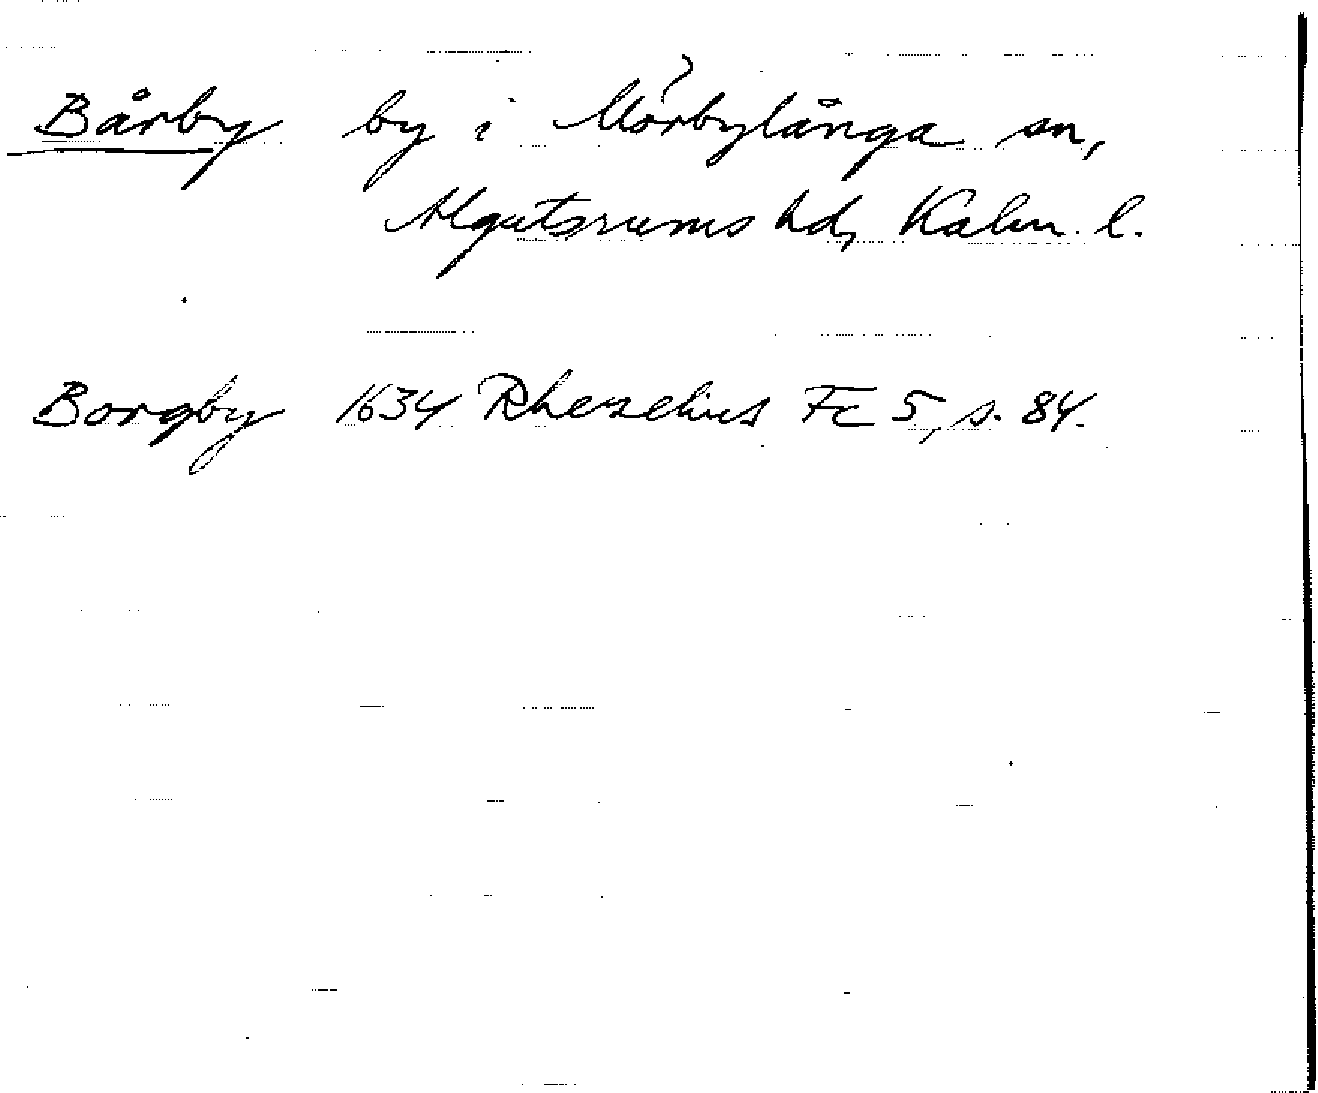 Bårby by i Mörbylånga sn,
Algutsrums hd, Kalm. l.
Borgby 1634 Rhezelius Fc 5, s. 84.